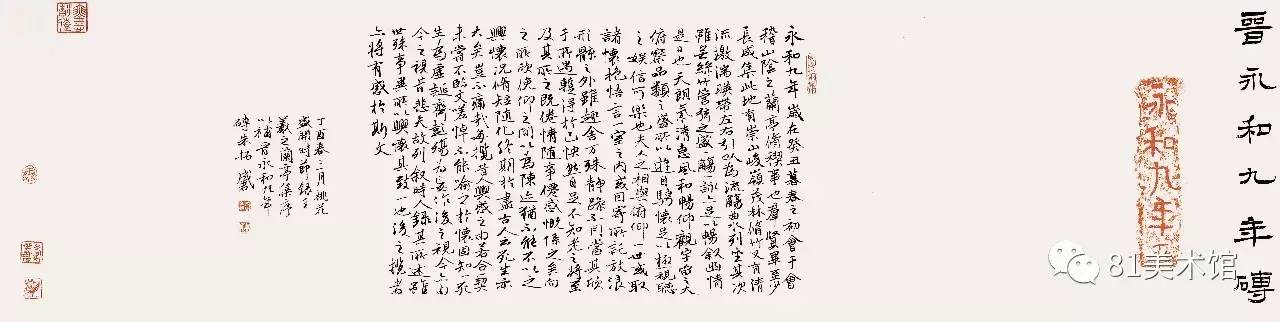 晉永和九年磚
永和九年
永和九年歲在癸丑暮春之初會于會
稽山陰之蘭亭脩禊事也羣賢畢至少
長咸集此地有崇山峻嶺茂林脩竹又有清
流激湍暎帶左右引以為流觴曲水列坐其次
雖無絲竹管弦之盛一觴一詠亦足以暢敘幽情
是日也天朗氣清惠風和暢仰觀宇宙之大
俯察品類之盛所以遊目騁懷足以極視聽
之娛信可樂也夫人之相與俯仰一世或取
諸懷抱悟言一室之內或因寄所託放浪
形骸之外雖趣舍萬殊靜躁不同當其欣
于所遇暫得於己快然自足不知老之將至
及其所之既倦情隨事遷感慨係之矣向
之所欣俛仰之間以為陳迹猶不能不以之
興懷況脩短隨化終期於盡古人云死生亦
大矣豈不痛哉每攬昔人興感之由若合一契
未嘗不臨文嗟悼不能喻之於懷固知一死
生為虛誕齊彭殤為妄作後之視今亦由
今之視昔悲夫故列敘時人錄其所述雖
世殊事異所以興懷其致一也後之攬者
亦將有感於斯文
丁酉春三月桃花
盛開時節錄王
羲之蘭亭集序
以補晉永和九年
磚朱拓
81美术馆